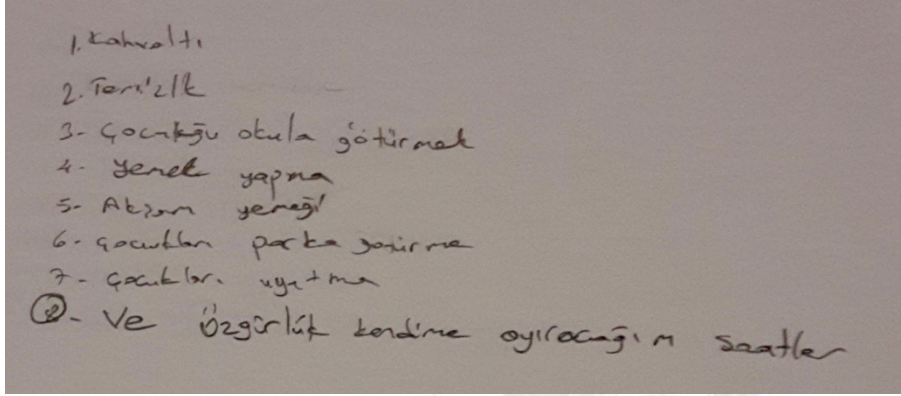 1. Kahvaltı
2. Temizlik
3- Çocuğu okula götürmek
4- Yemek yapma
5- Akşam yemeği
6- Çocukları parka götürme
7- Çocukları uyutma
8- Ve Özgürlük kendime ayıracağım saatler